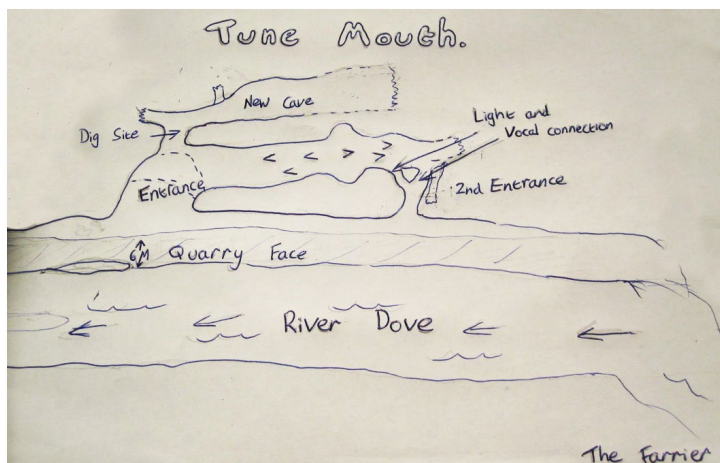 Tune Mouth.
New Cave
Dig Site
Light and
Vocal connection
Entrance
2nd Entrance
6M
Quarry Face
River Dove
The Farrier